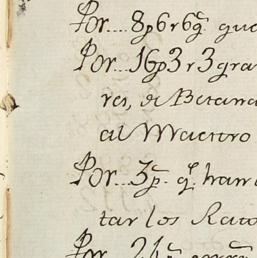 Por.... 8p 6r 6q. que
Por... 16p 3r 3 gra
res, de Betana
al Maestro
Por... 3p. q.l han
tar los Rato
Por... 2